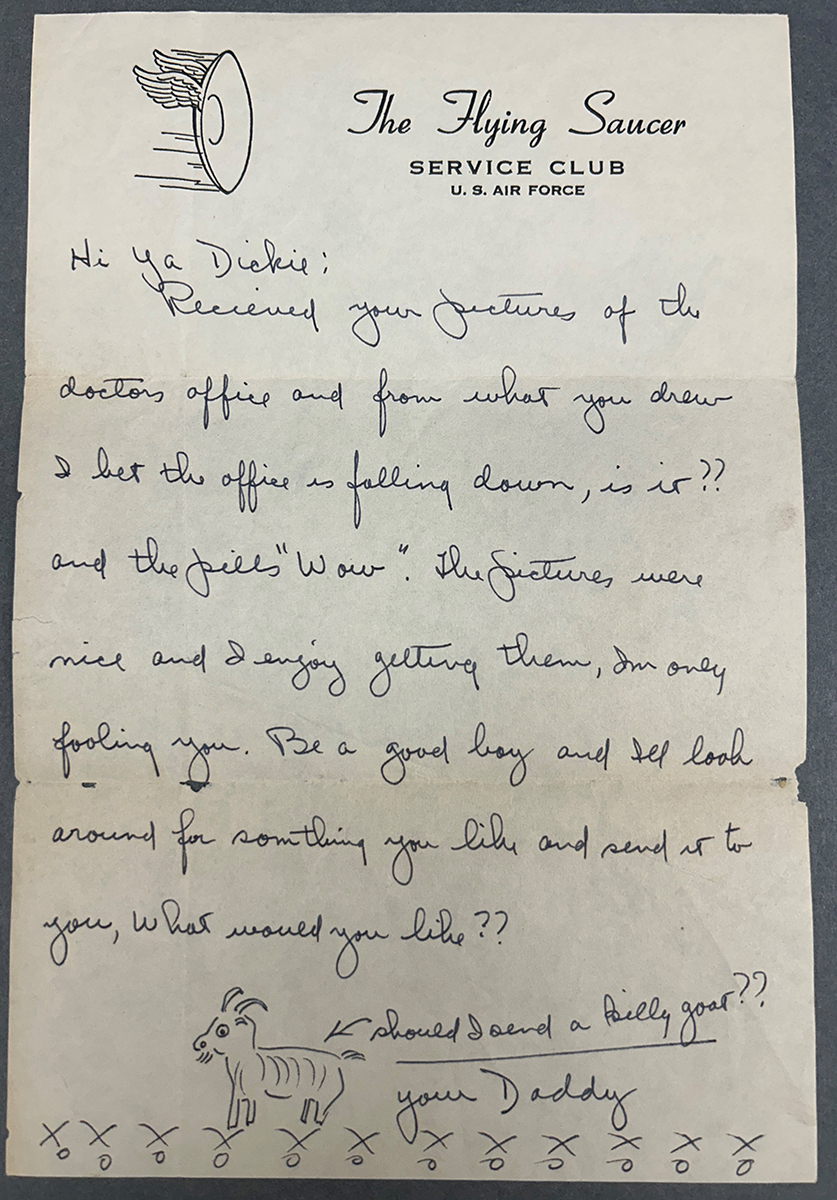 The Flying Saucer
SERVICE CLUB
U. S. AIR FORCE
Hi Ya Dickie:
Recieved your pictures of the
doctors office and from what you drew
I bet the office is falling down, is it??
and the pills "Wow". The pictures were
nice and I enjoy getting them, Im only
fooling you. Be a good boy and Ill look
around for somthing you like and send it to
you, What would you like??
should I send a billy goat??
your Daddy
X X X X X X X X X X X X
O O O O O O O O O O O O